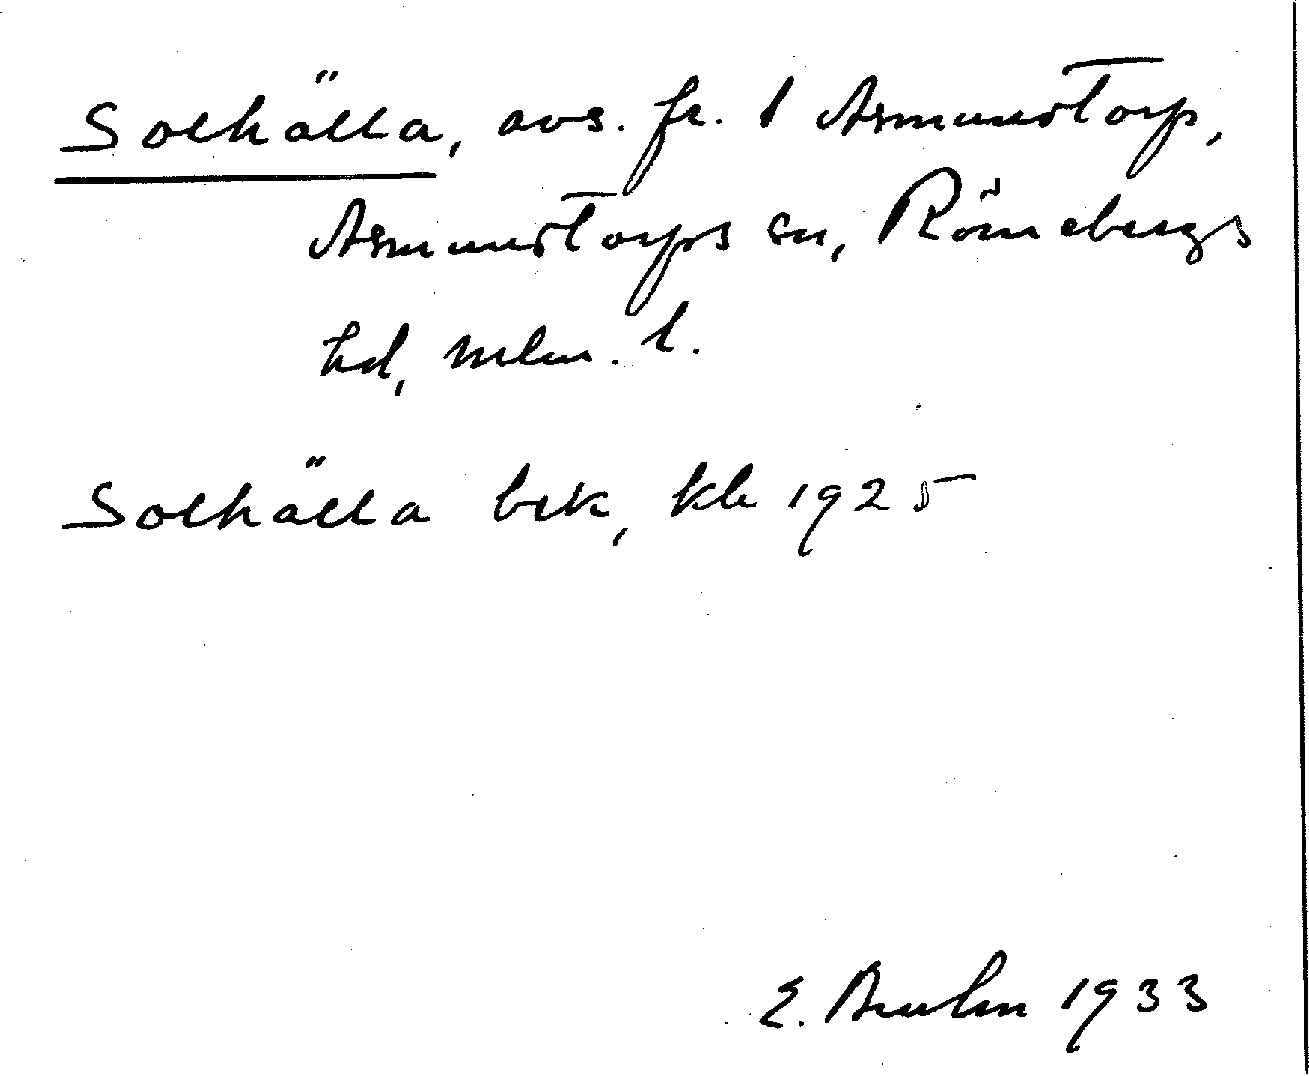 Solhälla, avs. fr. 1 Asmundtorp,
Asmundtorps sn, Rönnebergs
hd, Mlm. l.
Solhälla brk, kb 1925
E. Bruhn 1933